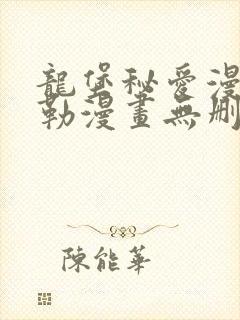 龍堡秘愛漫
勒漫畫無刪
陳能華